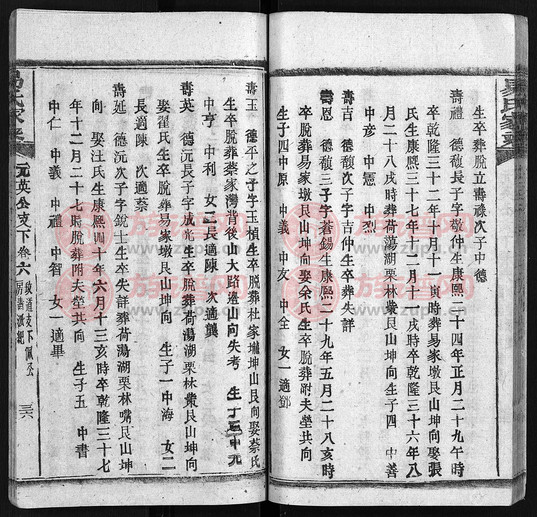 生卒脫葬立壽祿次子中德
壽禮 德馥長子字敬仲生康熙二十四年正月二十九午時
卒乾隆三十二年十月十一時葬易家墩艮山坤向娶張
氏生康熙三十七年十二月十一戌時卒乾隆三十六年八
月二十八戌時葬荷湯湖栗林嘴艮山坤向生子四 中善
中彥 中憲 中烈
壽吉 德馥次子字吉仲生卒葬失詳
壽恩 德馥三子字蒼錫生康熙二十九年五月二十八亥時
卒脫葬易家墩艮山坤向娶余氏生卒脫葬附夫塋共向
生子四中原 中義 中友 中全 女一適鄧
壽玉 德平之子字玉楨生卒脫葬杜家壠坤山艮向娶蔡氏
生卒脫葬蔡家灣背後山大路邊山向失考 生子三中元
中亨 中利 女二長適陳 次適龔
壽英 德沅長子字成光生卒脫葬荷湯湖栗林嘴艮山坤向
娶翟氏生卒脫葬易家墩艮山坤向 生子一中海 女二
長適陳 次適蔡
壽延 德沅次子字銳士生卒失詳葬荷湯湖栗林嘴艮山坤
向 娶汪氏生康熙四十年六月十三亥時卒乾隆三十七
年十二月二十七時脫葬附夫塋共向 生子五 中書
中仁 中義 中禮 中智 女一適畢
易氏家乘
元英公支下卷六